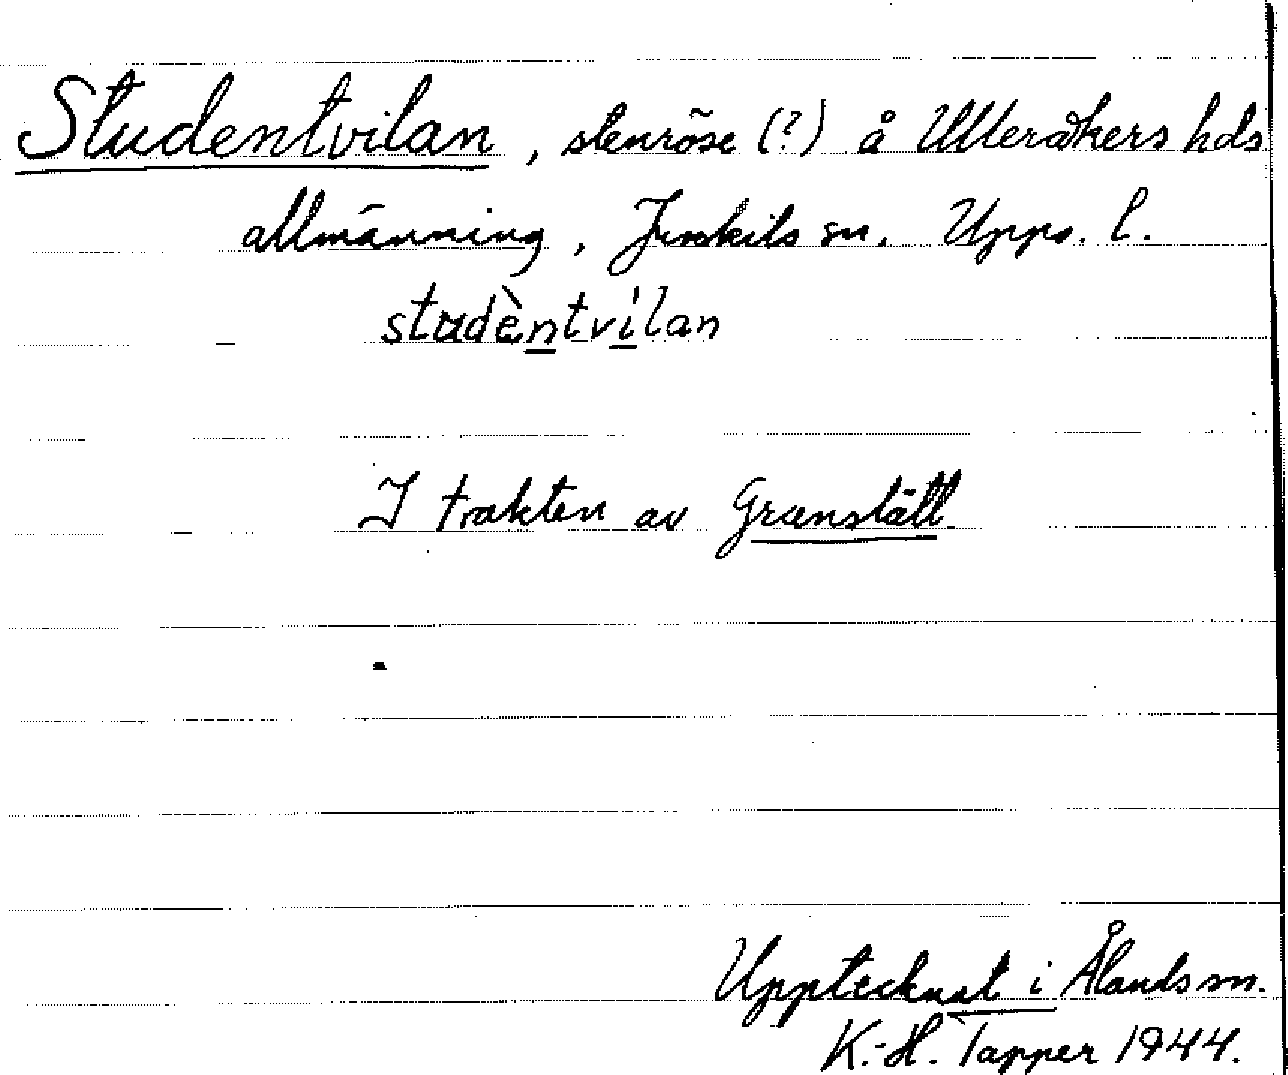 Studentvilan, stenröse (?) å Ulleråkers hds
allmänning, Jumkils sn. Upps. l.
studèntvilan
I trakten av Granstätt.
Upptecknat i Ålands sn.
K.-H. Tapper 1944.